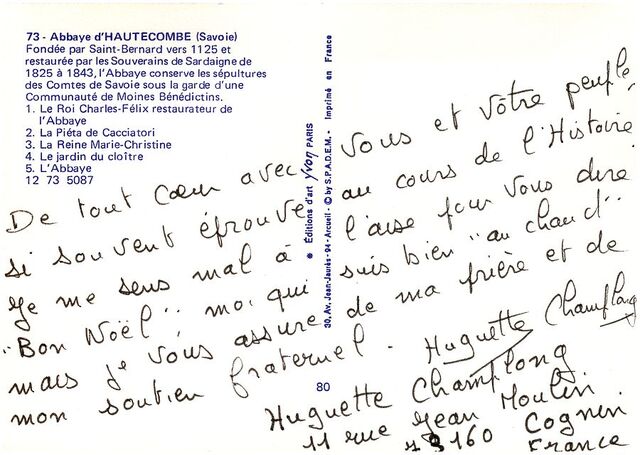 73 - Abbaye d'HAUTECOMBE (Savoie)
Fondée par Saint-Bernard vers 1125 et
restaurée par les Souverains de Sardaigne de
1825 à 1843, l'Abbaye conserve les sépultures
des Comtes de Savoie sous la garde d'une
Communauté de Moines Bénédictins.
1. Le Roi Charles-Félix restaurateur de
l'Abbaye
2. La Piéta de Cacciatori
3. La Reine Marie-Christine
4. Le jardin du cloître
5. L'Abbaye
12 73 5087
De tout cœur avec vous et votre peuple,
si souvent éprouvé au cours de l'Histoire
Je me sens mal à l'aise pour vous dire
"Bon Noël", moi qui suis bien "au chaud"
mais je vous assure de ma prière et de
mon soutien fraternel. Huguette Champlong
Huguette Champlong
11 rue Jean Moulin
73160 Cognin
France
Éditions d'art yvon PARIS
30, Av. Jean-Jaurès - 94 - Arcueil - © by S.P.A.D.E.M. - Imprimé en France
80